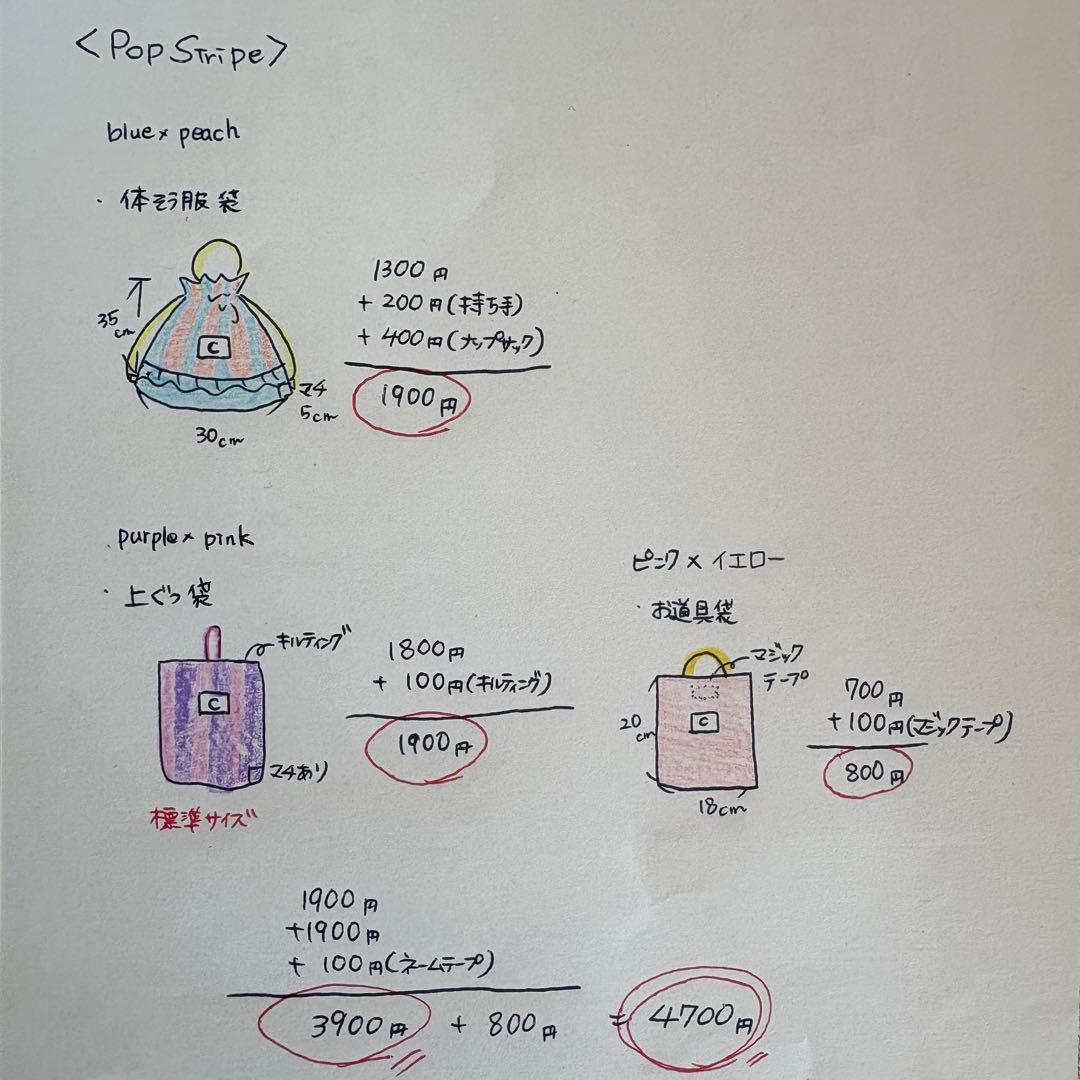 <Pop Stripe>
blue × peach
・体そう服袋
35cm
C
マチ
5cm
30cm
1300円
+ 200円(持ち手)
+ 400円(ナップサック)
1900円
purple × pink
・上ぐつ袋
キルティング
C
マチあり
標準サイズ
1800円
+ 100円(キルティング)
1900円
ピンク × イエロー
・お道具袋
マジック
テープ
C
20cm
18cm
700円
+100円(マジックテープ)
800円
1900円
+1900円
+ 100円(ネームテープ)
3900円 + 800円 = 4700円